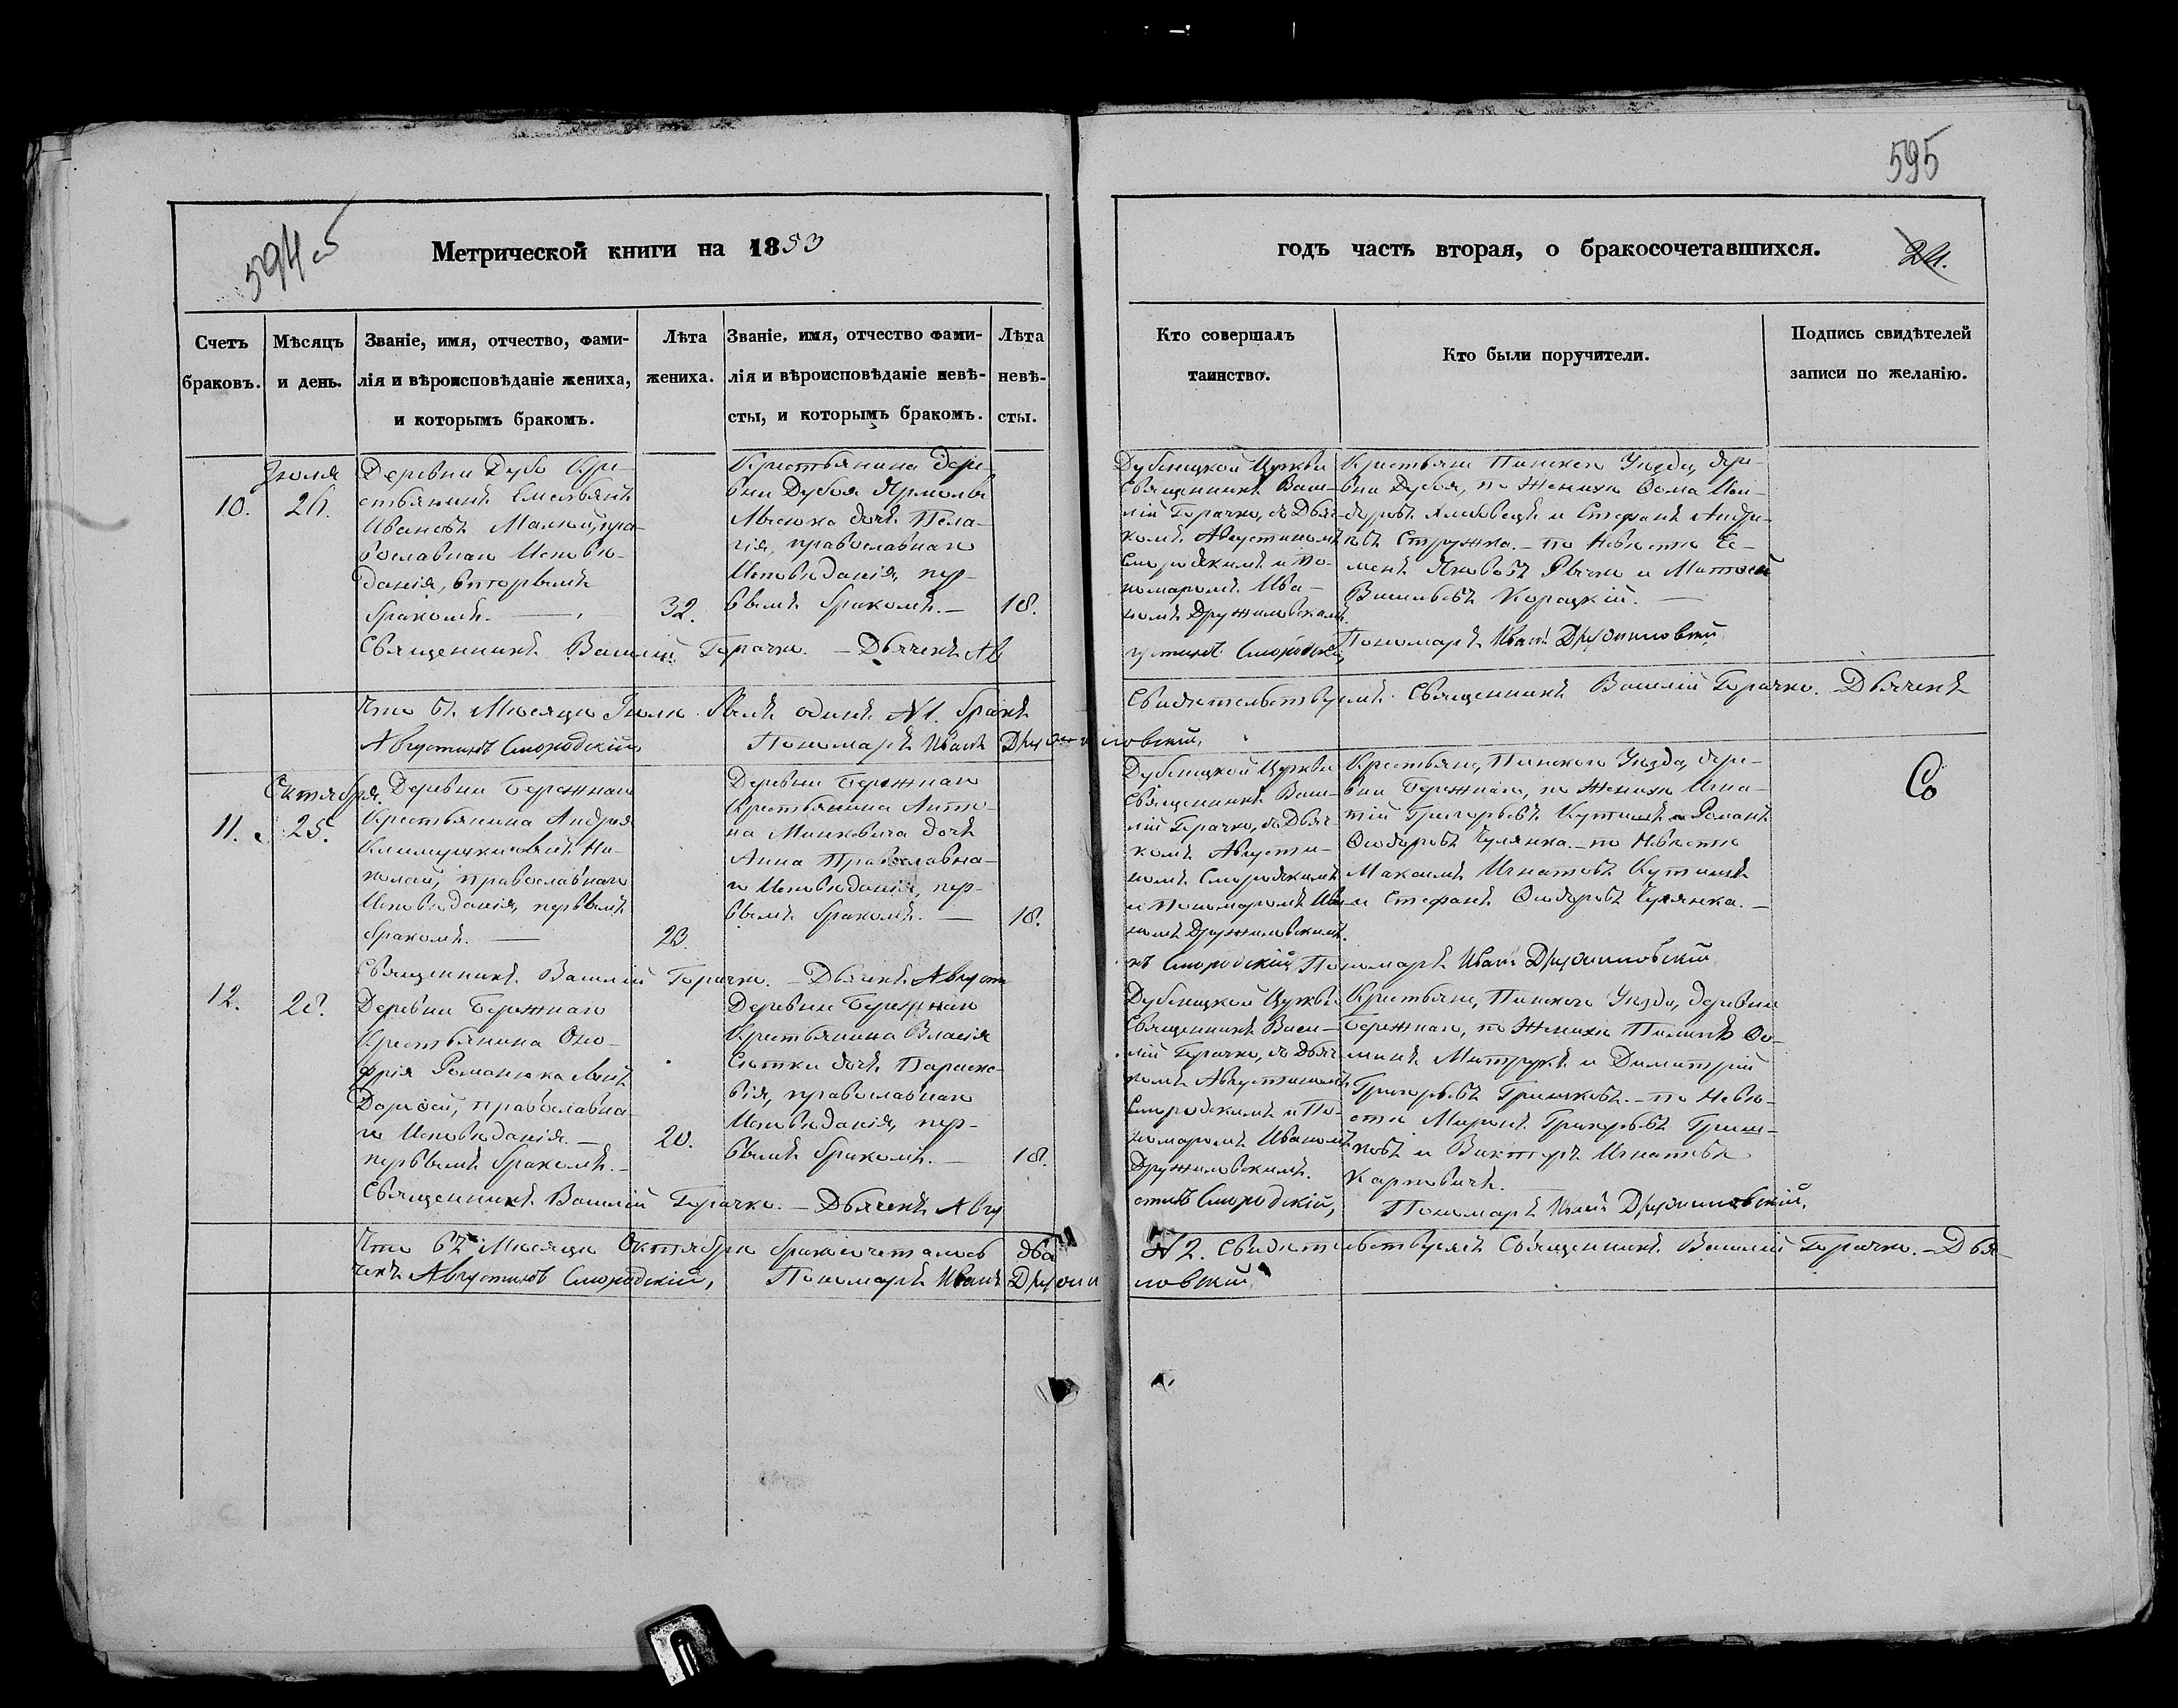 595
594 об
Метрической книги на 1853
годъ часть вторая, о бракосочетавшихся.
24.
Счетъ
браковъ.
Мѣсяцъ
и день.
Званіе, имя, отчество, фами-
лія и вѣроисповѣданіе жениха,
и которымъ бракомъ.
Лѣта
жениха.
Званіе, имя, отчество фами-
лія и вѣроисповѣданіе невѣ-
сты, и которымъ бракомъ.
Лѣта
невѣ-
сты.
Кто совершалъ
таинство.
Кто были поручители.
Подпись свидѣтелей
записи по желанію.
10.
Іюля
26.
Деревни Дубо Кре-
стьянинъ Емельянъ
Ивановъ пра-
вославнаго Исповѣ-
данія, вторымъ
бракомъ. —
32.
Крестьянина дере-
вни Дубоя Ярмолы
дочь Пела-
гія, православнаго
Исповѣданія, пер-
вымъ бракомъ. —
18.
Церкви
Священникъ Васи-
лій Горачко, съ Дьяч-
комъ Августиномъ
Смородскимъ и По-
номаромъ Ива-
номъ Дружиловскимъ.
Крестьяне Пинского Уѣзда, дере-
вни Дубоя, по Женихѣ Ѳома
и Стефанъ Андре-
евъ Стружка. — по Невѣстѣ Се-
менъ Яковъ и Матѳей
Васильевъ Корацкій. —
Священникъ Василій Горачко. — Дьячекъ Ав
густинъ Смородскій, Пономарь Иванъ Дружиловскій.
Что въ Мѣсяцѣ Іюлѣ былъ одинъ №1. бракъ
Свидѣтельствуемъ: Священникъ Василій Горачко. Дьячекъ
Августинъ Смородскій, Пономарь Иванъ Дружиловскій.
11.
Октября.
25.
Деревни Бережнаго
Крестьянина Андрея
сынъ Ни-
колай, православнаго
Исповѣданія, первымъ
бракомъ. —
23.
Деревни Бережнаго
Крестьянина Анто-
на Минковича дочь
Анна Православна-
го Исповѣданія, пер-
вымъ бракомъ. —
18.
Церкви
Священникъ Васи-
лій Горачко, съ Дьяч-
комъ Августи-
номъ Смородскимъ
и Пономаромъ Ива-
номъ Дружиловскимъ.
Крестьяне, Пинского Уѣзда, дере-
вни Бережнаго, по Женихѣ Игна-
тій Григорьевъ и Романъ
Ѳедоровъ Чулянка. — по Невѣстѣ
Максимъ Игнатовъ
и Стефанъ Ѳедоровъ Чулянка. —
Священникъ Василій Горачко. — Дьячекъ Августи
нъ Смородскій, Пономарь Иванъ Дружиловскій.
12.
28.
Деревни Бережнаго
Крестьянина Оно-
фрія Романюка сынъ
православна-
го Исповѣданія. —
первымъ бракомъ. —
20.
Деревни Бережнаго
Крестьянина Власія
дочь Параске-
вія, православнаго
Исповѣданія, пер-
вымъ бракомъ. —
18.
Церкви
Священникъ Васи-
лій Горачко, съ Дьяч-
комъ Августиномъ
Смородскимъ и По-
номаромъ Иваномъ
Дружиловскимъ.
Крестьяне, Пинского Уѣзда, деревни
Бережнаго, по Женихѣ Ѳо-
минъ и Димитрій
Григорьевъ Гришковъ. — по Невѣ-
стѣ Миронъ Григорьевъ Гриш-
ковъ и Викторъ Игнатовъ
Карповичъ.
Священникъ Василій Горачко. — Дьячекъ Авгу
стинъ Смородскій, Пономарь Иванъ Дружиловскій.
Что въ Мѣсяцѣ Октябрѣ бракосочеталось два
№ 2. Свидѣтельствуемъ Священникъ Василій Горачко. — Дья-
чекъ Августинъ Смородскій, Пономарь Иванъ Дружи
ловскій.